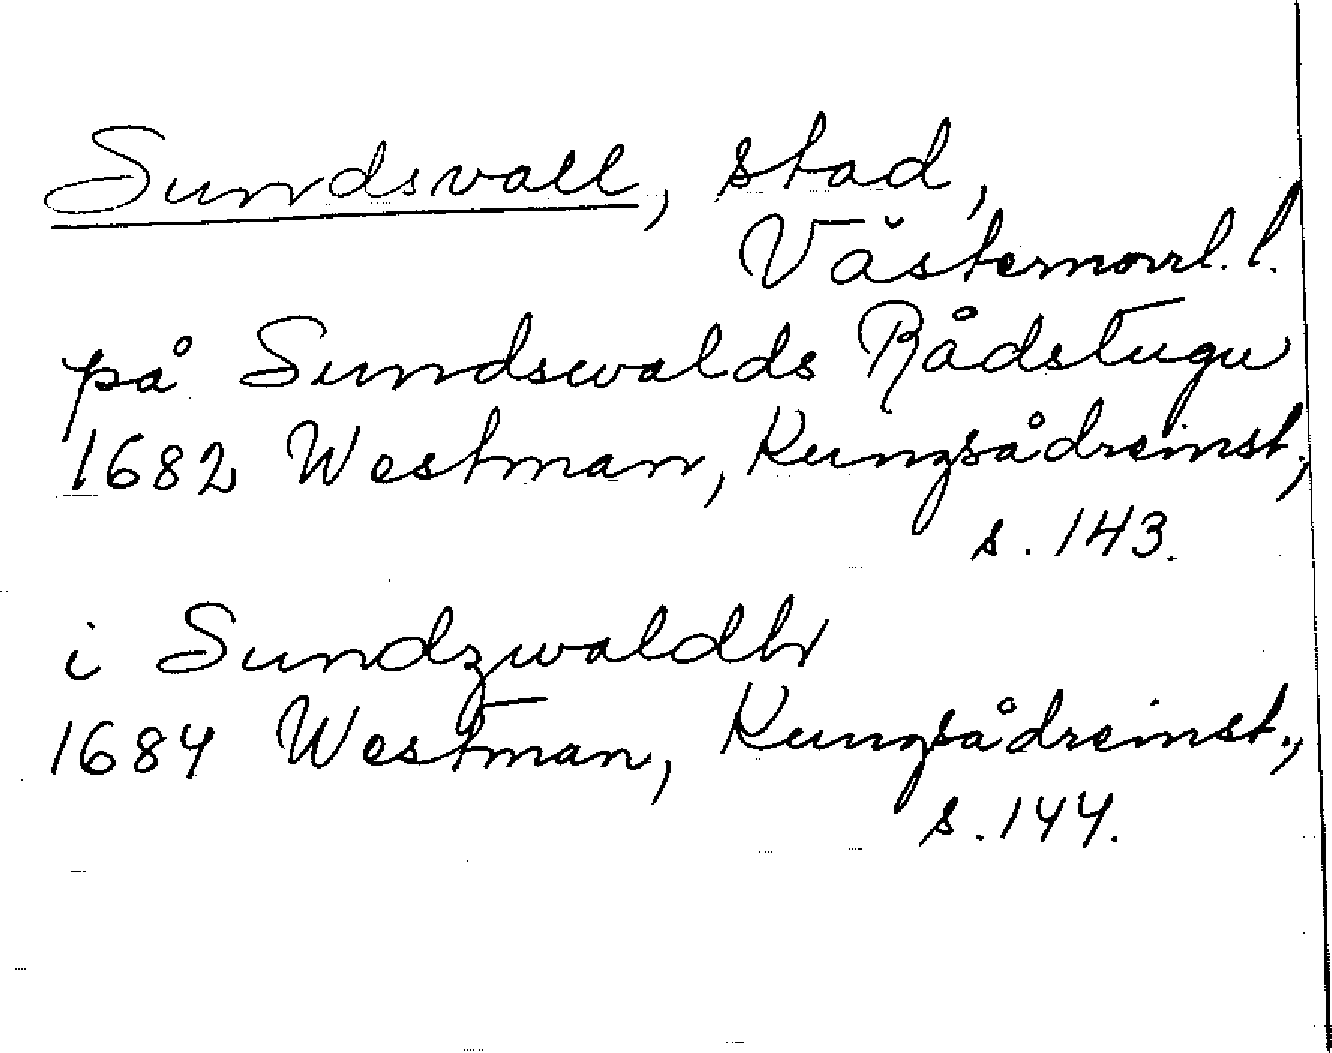 Sundsvall, stad,
Västernorrl. l.
på Sundswalds Rådstugu
1682 Westman, Kungsådreinst.,
s. 143.
i Sundzwaldh
1684 Westman, Kungsådreinst.,
s. 144.